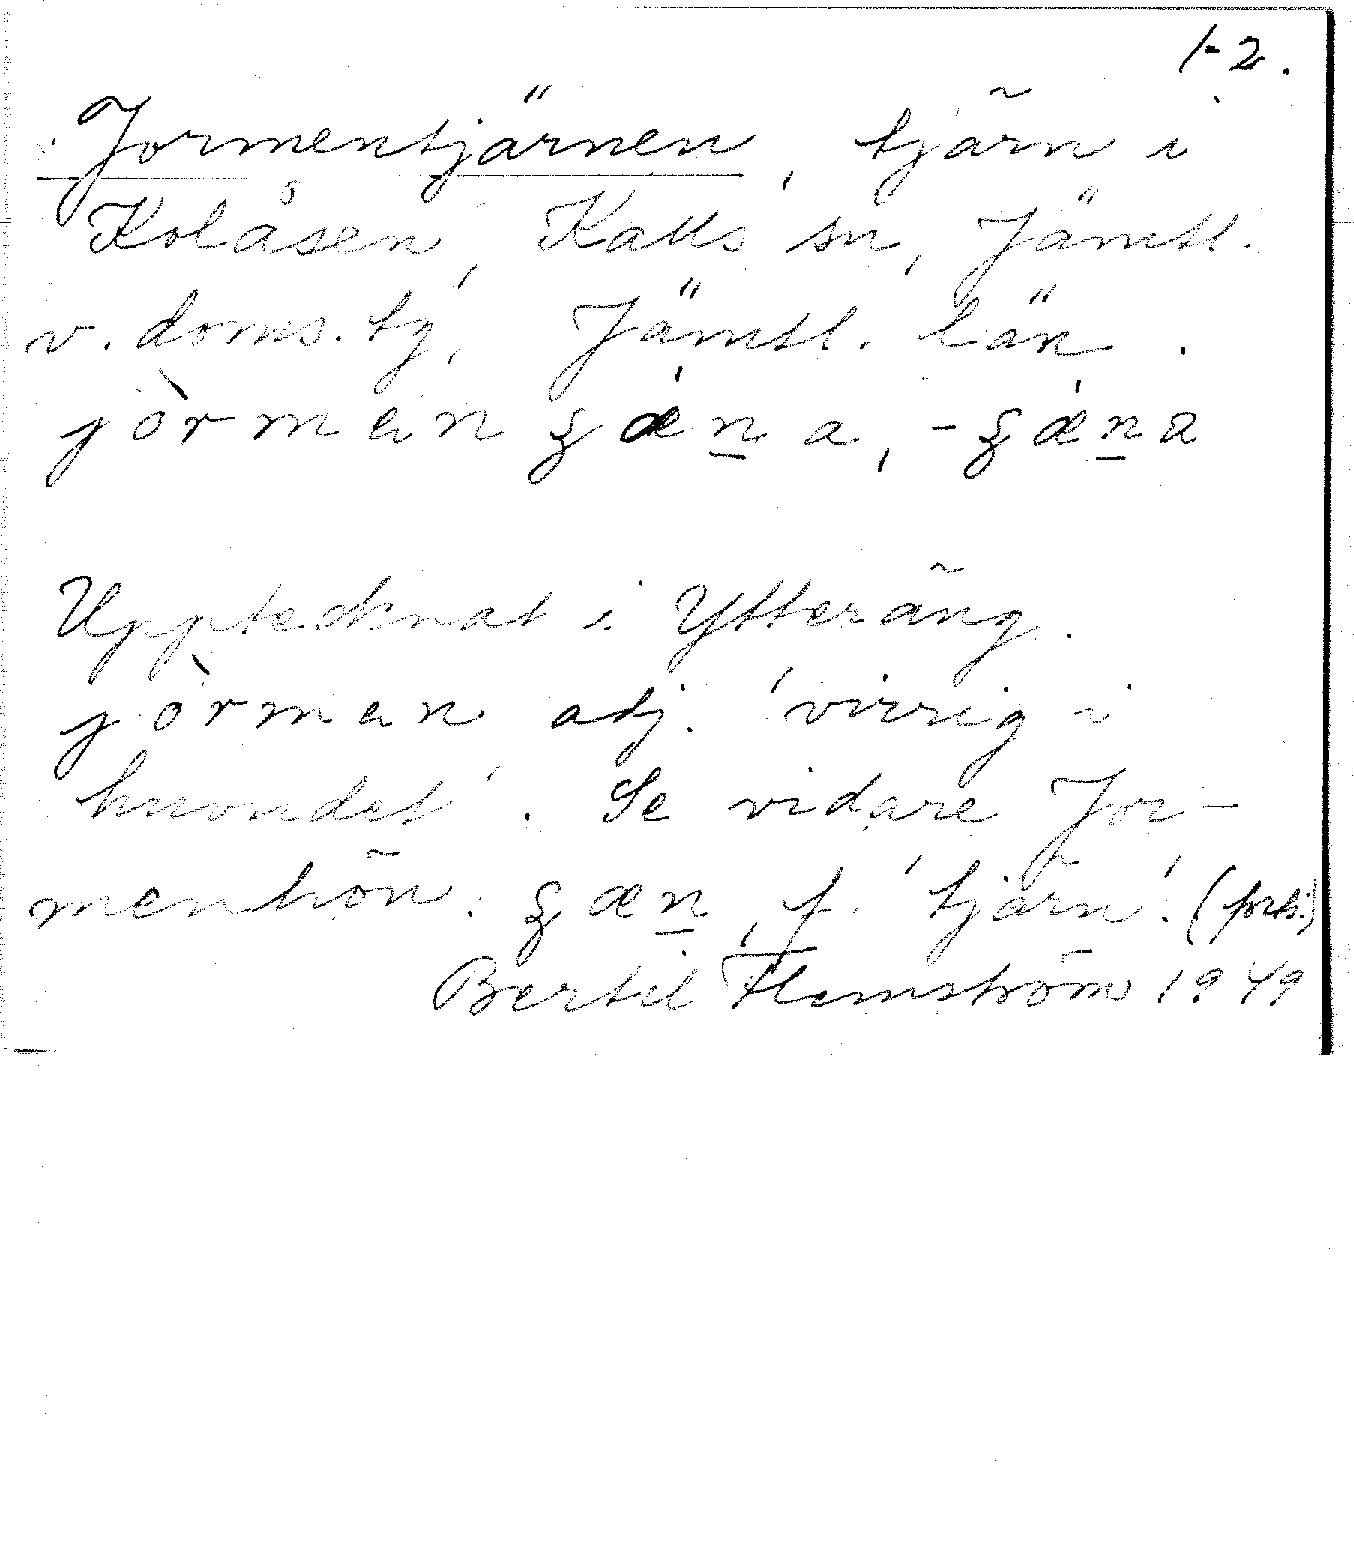 1-2.
Jormentjärnen, tjärn i
Kolåsen, Kalls sn, Jämtl.
v. doms. tg, Jämtl. län.
Upptecknat i Ytteräng.
adj. 'virrig i
huvudet'. Se vidare Jor-
menhön. f. 'tjärn'. (forts.)
Bertil Flemström 1949